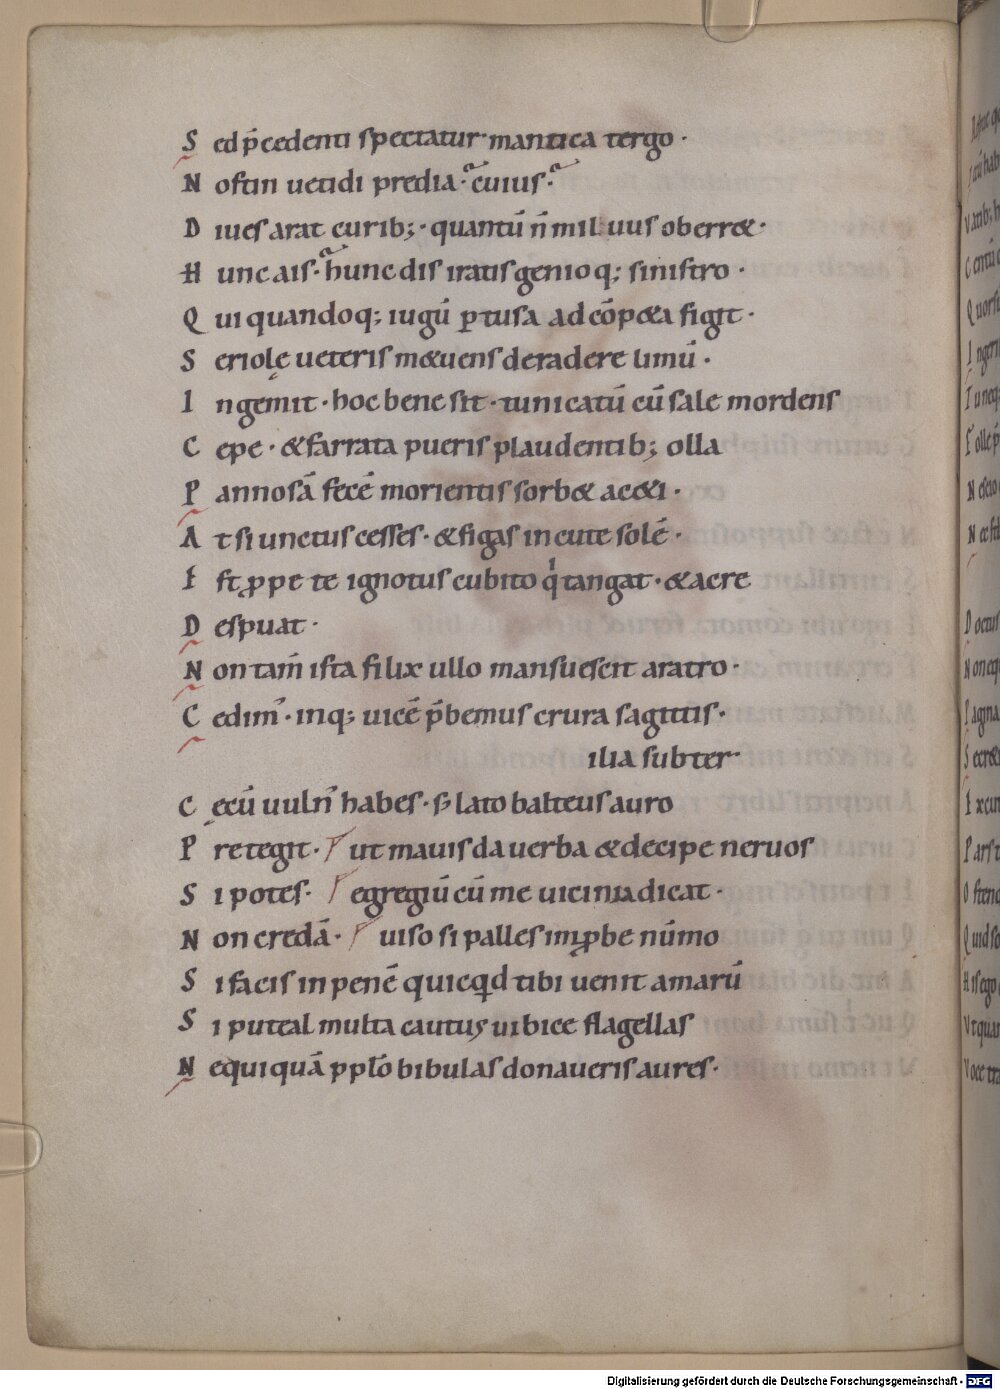 S ed p̄cedenti spectatur mantica tergo ·
N ostin uetidi predia · cuius ·
D iues arat curib; · quantū n̄ miluus oberr& ·
H unc ais · hunc dis iratis genioq; sinistro ·
Q ui quandoq; iugū ꝑtusa ad cōpeta figit ·
S eriolę ueteris m&uens deradere limū ·
I ngemit · hoc bene sit · tunicatū cū sale mordens
C epe · & farrata pueris plaudentib; olla
P annosā fecē morientis sorb& ac&i ·
A t si unctus cesses · & figas in cute solē ·
E st ꝓpe te ignotus cubito q̇ tangat · & acre
D espuat ·
N on tam̄ ista filix ullo mansuescit aratro ·
C edim' · inq; uicē p̄bemus crura sagittis ·
ilia subter
C ecū uuln' habes · s; lato balteus auro
P retegit · ut mauis da uerba & decipe neruos
S i potes · egregiū cū me uicinia dicat ·
N on credā · uiso si palles imꝓbe nūmo
S i facis in penē quicq̇d tibi uenit amarū
S i puteal multa cautus uibice flagellas
N equiquā pplo bibulas donaueris aures ·
Digitalisierung gefördert durch die Deutsche Forschungsgemeinschaft - DFG